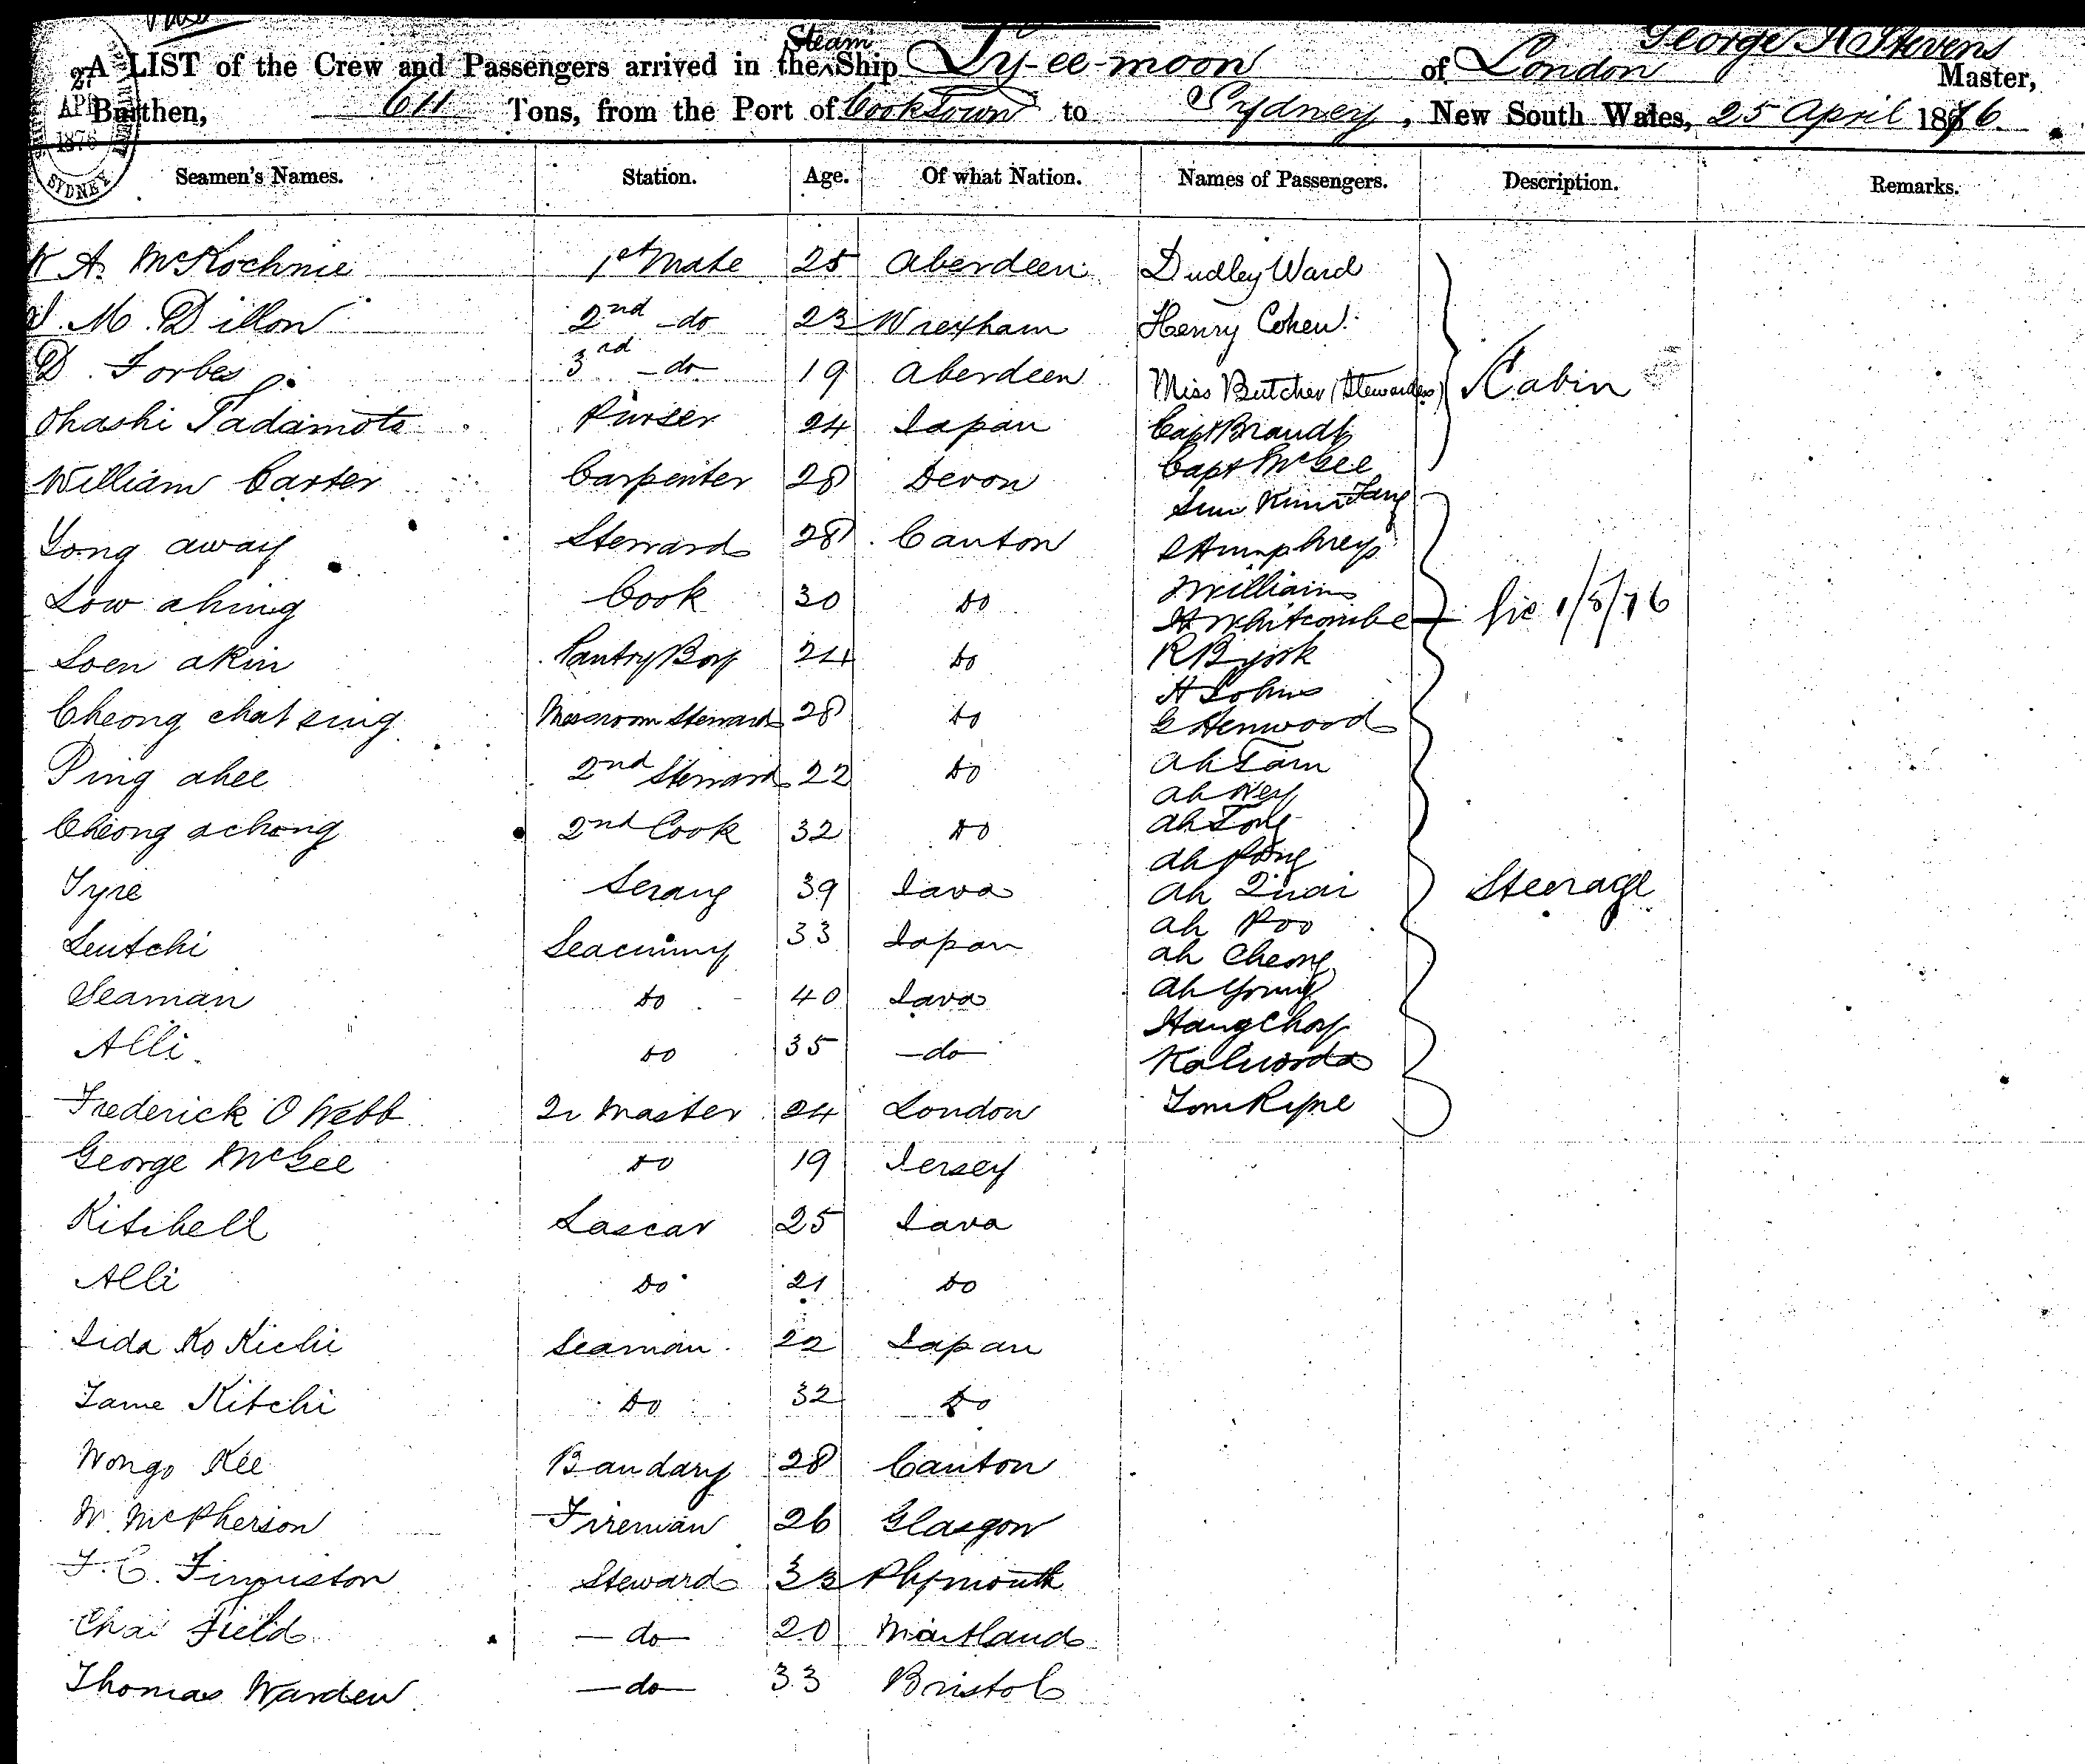 George A Stevens
A LIST of the Crew and Passengers arrived in the Steam Ship Ly-ee-moon of London Master,
Burthen, 611 Tons, from the Port of Cooktown to Sydney, New South Wales, 25 April 1876.
APR
1876
SYDNEY
Seamen's Names. Station. Age. Of what Nation. Names of Passengers. Description. Remarks.
A. McKochnie 1st Mate 25 Aberdeen Dudley Ward
M. Dillon 2nd do 23 Wrexham Henry Cohen
D. Forbes 3rd do 19 Aberdeen Miss Butcher (Stewardess) Cabin
Ohashi Tadamoto Purser 24 Japan Capt Brandt
William Carter Carpenter 28 Devon Capt McGee
Sun Kum Fang
Yong away Steward 28 Canton Humphreys
Low ahing Cook 30 do Williams
H Whitcombe lic 1/5/76
Soen akin Pantry Boy 24 do R Bjork
H Johns
Cheong chat sing Messroom Steward 28 do G Henwood
Ping ahee 2nd Steward 22 do ah Tam
ah Key
Cheong achong 2nd Cook 32 do ah Tong
ah
Tyre Serang 39 Java ah Quai Steerage
ah Poo
Seutchi Seacunny 33 Japan ah Cheong
Seaman do 40 Java ah Young
Hang Choy
Alli do 35 do
Frederick O Webb Qr Master 24 London Tom
George McGee do 19 Jersey
Kitchell Lascar 25 Java
Alli do 21 do
Iida Ko Kichi Seaman 22 Japan
Tame Kitchi do 32 do
Wongo Kee Bandary 28 Canton
W. McPherson Fireman 26 Glasgow
Steward 33 Plymouth
Chas Field do 20 Maitland
Thomas Warden do 33 Bristol